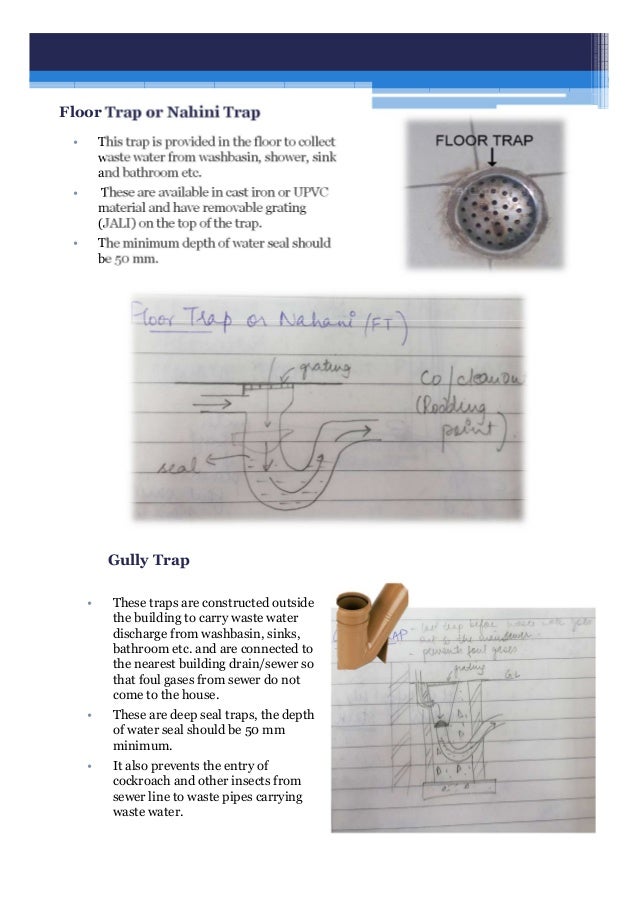 Floor Trap or Nahini Trap
• This trap is provided in the floor to collect
waste water from washbasin, shower, sink
and bathroom etc.
• These are available in cast iron or UPVC
material and have removable grating
(JALI) on the top of the trap.
• The minimum depth of water seal should
be 50 mm.
FLOOR TRAP
Floor Trap or Nahani (FT)
grating
Co/cleanou
(Rodding
point)
seal
Gully Trap
• These traps are constructed outside
the building to carry waste water
discharge from washbasin, sinks,
bathroom etc. and are connected to
the nearest building drain/sewer so
that foul gases from sewer do not
come to the house.
• These are deep seal traps, the depth
of water seal should be 50 mm
minimum.
• It also prevents the entry of
cockroach and other insects from
sewer line to waste pipes carrying
waste water.
AP - last trap before waste water goes
out to the
- prevents foul gases
grating
G.L